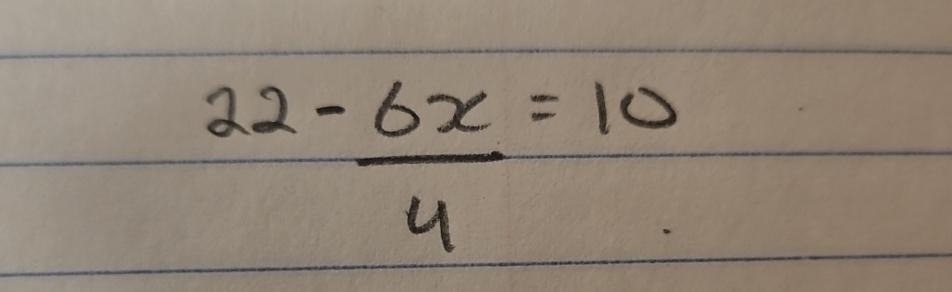 22 - 6x = 10
4